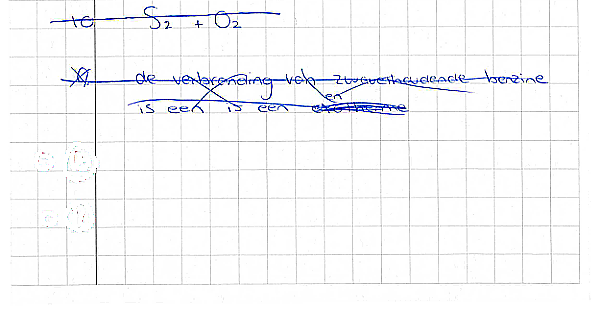 10 S₂ + O₂
de verbranding van zwavelhoudende benzine
en
is een is een exotherme